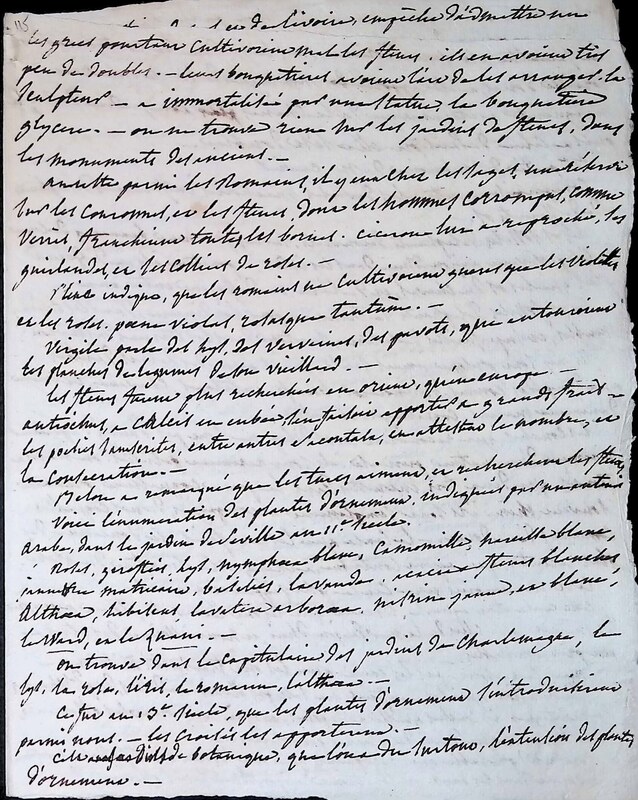 115
de l'ivoire, empêche d'admettre un
les grecs pourtant cultivoient mal les fleurs. ils en avoient très
peu de doubles. — leurs bouquetieres avoient l'art de les arranger. la
sculpture — a immortalisé par une statue la bouquetière
glycere. — on ne trouve rien sur les jardins de fleurs, dans
les monuments des anciens. —
ensuite parmi les Romains, il y eut chez les sages, une réserve
sur les couronnes, et les fleurs, dont les hommes corrompus, comme
Verrès, franchirent toutes les bornes. ciceron lui a reproché, les
guirlandes, et les colliers de roses. —
Pline indique, que les romains ne cultivoient gueres que les violettes
et les roses. poene violas, rosasque tantum. —
Virgile parle des lys, des verveines, des pavots, qui entouroient
les planches de legumes de son vieillard. —
les fleurs furent plus recherchées en orient, qu'en europe. —
antiochus, a Chalcis en eubée, s'en faisoit apporter a grands frais —
les poesies sanscrites, entre autres Sacontala, en attestent le nombre, et
la consécration. —
Belon a remarqué que les turcs aiment, et recherchent les fleurs,
Voici l'énumeration des plantes d'ornement, indiquées par un auteur
arabe, dans le jardin de Seville au 11e siècle.
Roses, giroflées, lys, nymphaea blanc, Camomille, narcisse blanc,
matricaire, lavande, acacia a fleurs blanches,
Althaea, hibiscus, lavatere arborea, nisrin jaune, et blanc,
le Ward, et le
On trouve dans le capitulaire des jardins de Charlemagne, le
lys, la rose, l'iris, le romarin, l'althaea. —
Ce fut au 13e siècle, que les plantes d'ornement s'introduisirent
parmi nous. — les Croisés les apporterent. —
de botanique, que l'on du surtout, l'extension des plantes
d'ornement. —